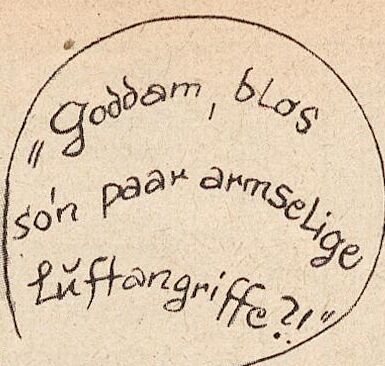 „Goddam, blos
so'n paar armselige
Lŭftangriffe?!"